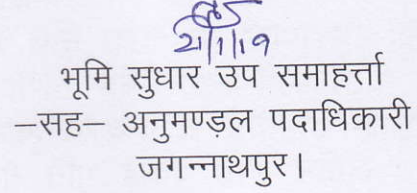 21/1/19
भूमि सुधार उप समाहर्त्ता
–सह– अनुमण्ड़ल पदाधिकारी
जगन्नाथपुर।